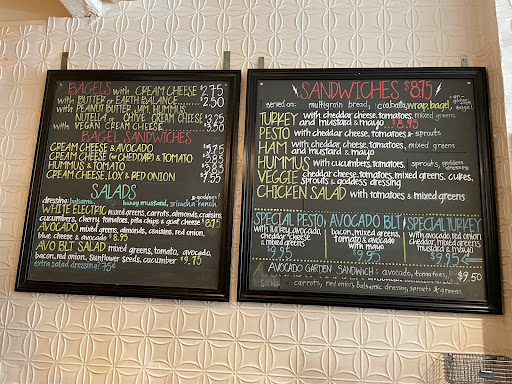 BAGELS with CREAM CHEESE $2.75
with BUTTER or EARTH BALANCE $2.50
with PEANUT BUTTER, JAM, HUMMUS
NUTELLA or CHIVE CREAM CHEESE $3.25
with VEGAN CREAM CHEESE $3.50
BAGEL SANDWICHES
CREAM CHEESE & AVOCADO
CREAM CHEESE or CHEDDAR & TOMATO $3.85
HUMMUS & TOMATO
CREAM CHEESE, LOX & RED ONION
SALADS
dressing: balsamic, honey mustard, sriracha ranch, & goddess!
WHITE ELECTRIC mixed greens, carrots, almonds, craisins,
cucumbers, cherry tomatoes, pita chips & goat cheese $8.75
AVOCADO mixed greens, almonds, craisins, red onion,
blue cheese & avocado $8.95
AVO BLT SALAD mixed greens, tomato, avocado,
bacon, red onion, sunflower seeds, cucumber $9.75
extra salad dressing? 75¢
SANDWICHES $8.75
served on: multigrain bread, ciabatta, wrap, bagel,
TURKEY with cheddar cheese, tomatoes, mixed greens
and mustard & mayo $8.95
PESTO with cheddar cheese, tomatoes & sprouts
HAM with cheddar cheese, tomatoes, mixed greens
and mustard & mayo
HUMMUS with cucumbers, tomatoes, sprouts, goddess dressing
VEGGIE cheddar cheese, tomatoes, mixed greens, cukes,
sprouts & goddess dressing
CHICKEN SALAD with tomatoes & mixed greens
SPECIAL PESTO
with turkey, avocado,
cheddar cheese
& mixed greens
$9.95
AVOCADO BLT
bacon, mixed greens,
tomato & avocado
with mayo
$9.95
SPECIAL TURKEY
with avocado, red onion
cheddar cheese, mixed greens
mustard & mayo
$9.95
AVOCADO GARDEN SANDWICH: avocado, tomatoes,
carrots, red onion, balsamic dressing, sprouts & greens $9.50